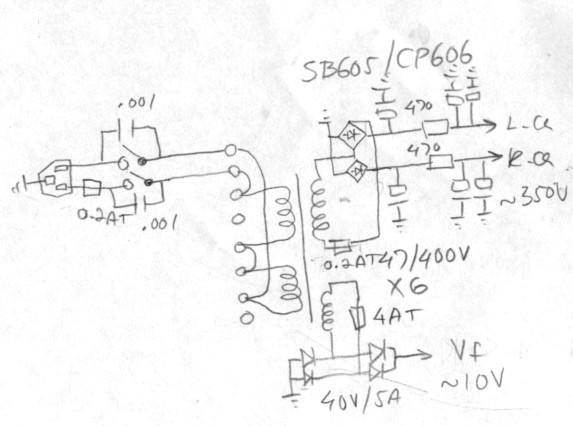 SB605/CP606
.001
470
L-CH
470
R-CH
~350V
0.2AT
.001
0.2AT 47/400V
X6
4AT
Vf
~10V
40V/5A